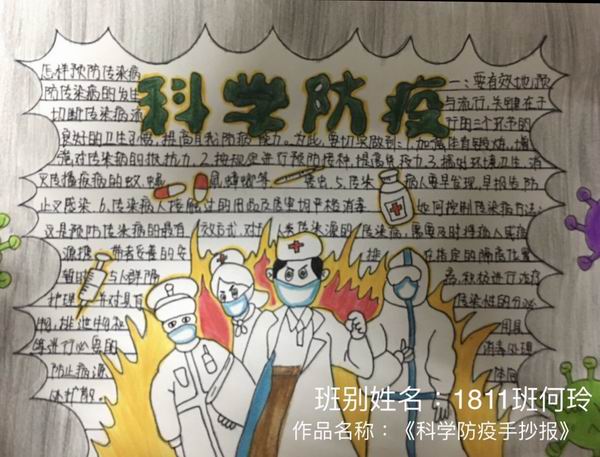 科学防疫
怎样预防传染病 一:要有效地预
防传染病的发生 与流行,关键在于
切断传染病流 行的三个环节的
良好的卫生习惯,提高自我防病能力。为此,要切实做到:1.加强体育锻炼,增
强对传染病的抵抗力.2.按规定进行预防接种,提高免疫力3.搞好环境卫生,消
灭传播疾病的蚊 蝇 鼠 蟑螂等 害虫.5.传染 病人要早发现,早报告防
止交叉感染.6.传染病人接触过的用品及居室均严格消毒 如何控制传染病方法:
这是预防传染病的最有效方式.对于人类传染源的传染病,需要及时将病人或病
源携 带者妥善的安 排 在指定的隔离位置
暂时 与人群隔 离,积极进行治疗
护理,并对具有 传染性的分泌
物,排泄物和 用具
等进行必要的 消毒处理
防止病源 体向
外扩散.
班别姓名:1811班何玲
作品名称:《科学防疫手抄报》